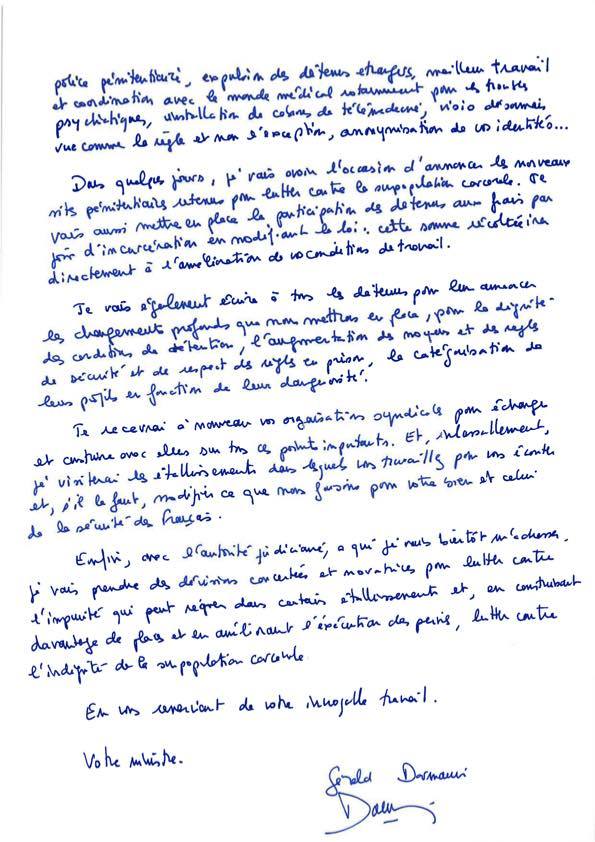 police pénitentiaire, expulsion des détenus étrangers, meilleur travail
et coordination avec le monde médical notamment pour les troubles
psychiatriques, installation de cabines de télémédecine, visio désormais
vue comme la règle et non l'exception, anonymisation de vos identités...
Dans quelques jours, je vais avoir l'occasion d'annoncer les nouveaux
sites pénitentiaires retenus pour lutter contre la surpopulation carcérale. Je
vais aussi mettre en place la participation des détenus aux frais par
jour d'incarcération en modifiant la loi : cette somme récoltée ira
directement à l'amélioration de vos conditions de travail.
Je vais également écrire à tous les détenus pour leur annoncer
les changements profonds que nous mettrons en place, pour la dignité
des conditions de détention, l'augmentation des moyens et des règles
de sécurité et de respect des règles en prison, la catégorisation de
leurs profils en fonction de leur dangerosité.
Je recevrai à nouveau vos organisations syndicales pour échanger
et construire avec elles sur tous ces points importants. Et, inlassablement,
je visiterai les établissements dans lesquels vous travaillez pour vous écouter
et, s'il le faut, modifier ce que nous faisons pour votre bien et celui
de la sécurité des Français.
Enfin, avec l'autorité judiciaire, à qui je vais bientôt m'adresser,
je vais prendre des décisions concertées et novatrices pour lutter contre
l'impunité qui peut régner dans certains établissements et, en construisant
davantage de places et en améliorant l'exécution des peines, lutter contre
l'indignité de la surpopulation carcérale
En vous remerciant de votre inlassable travail.
Votre ministre.
Gérald Darmanin